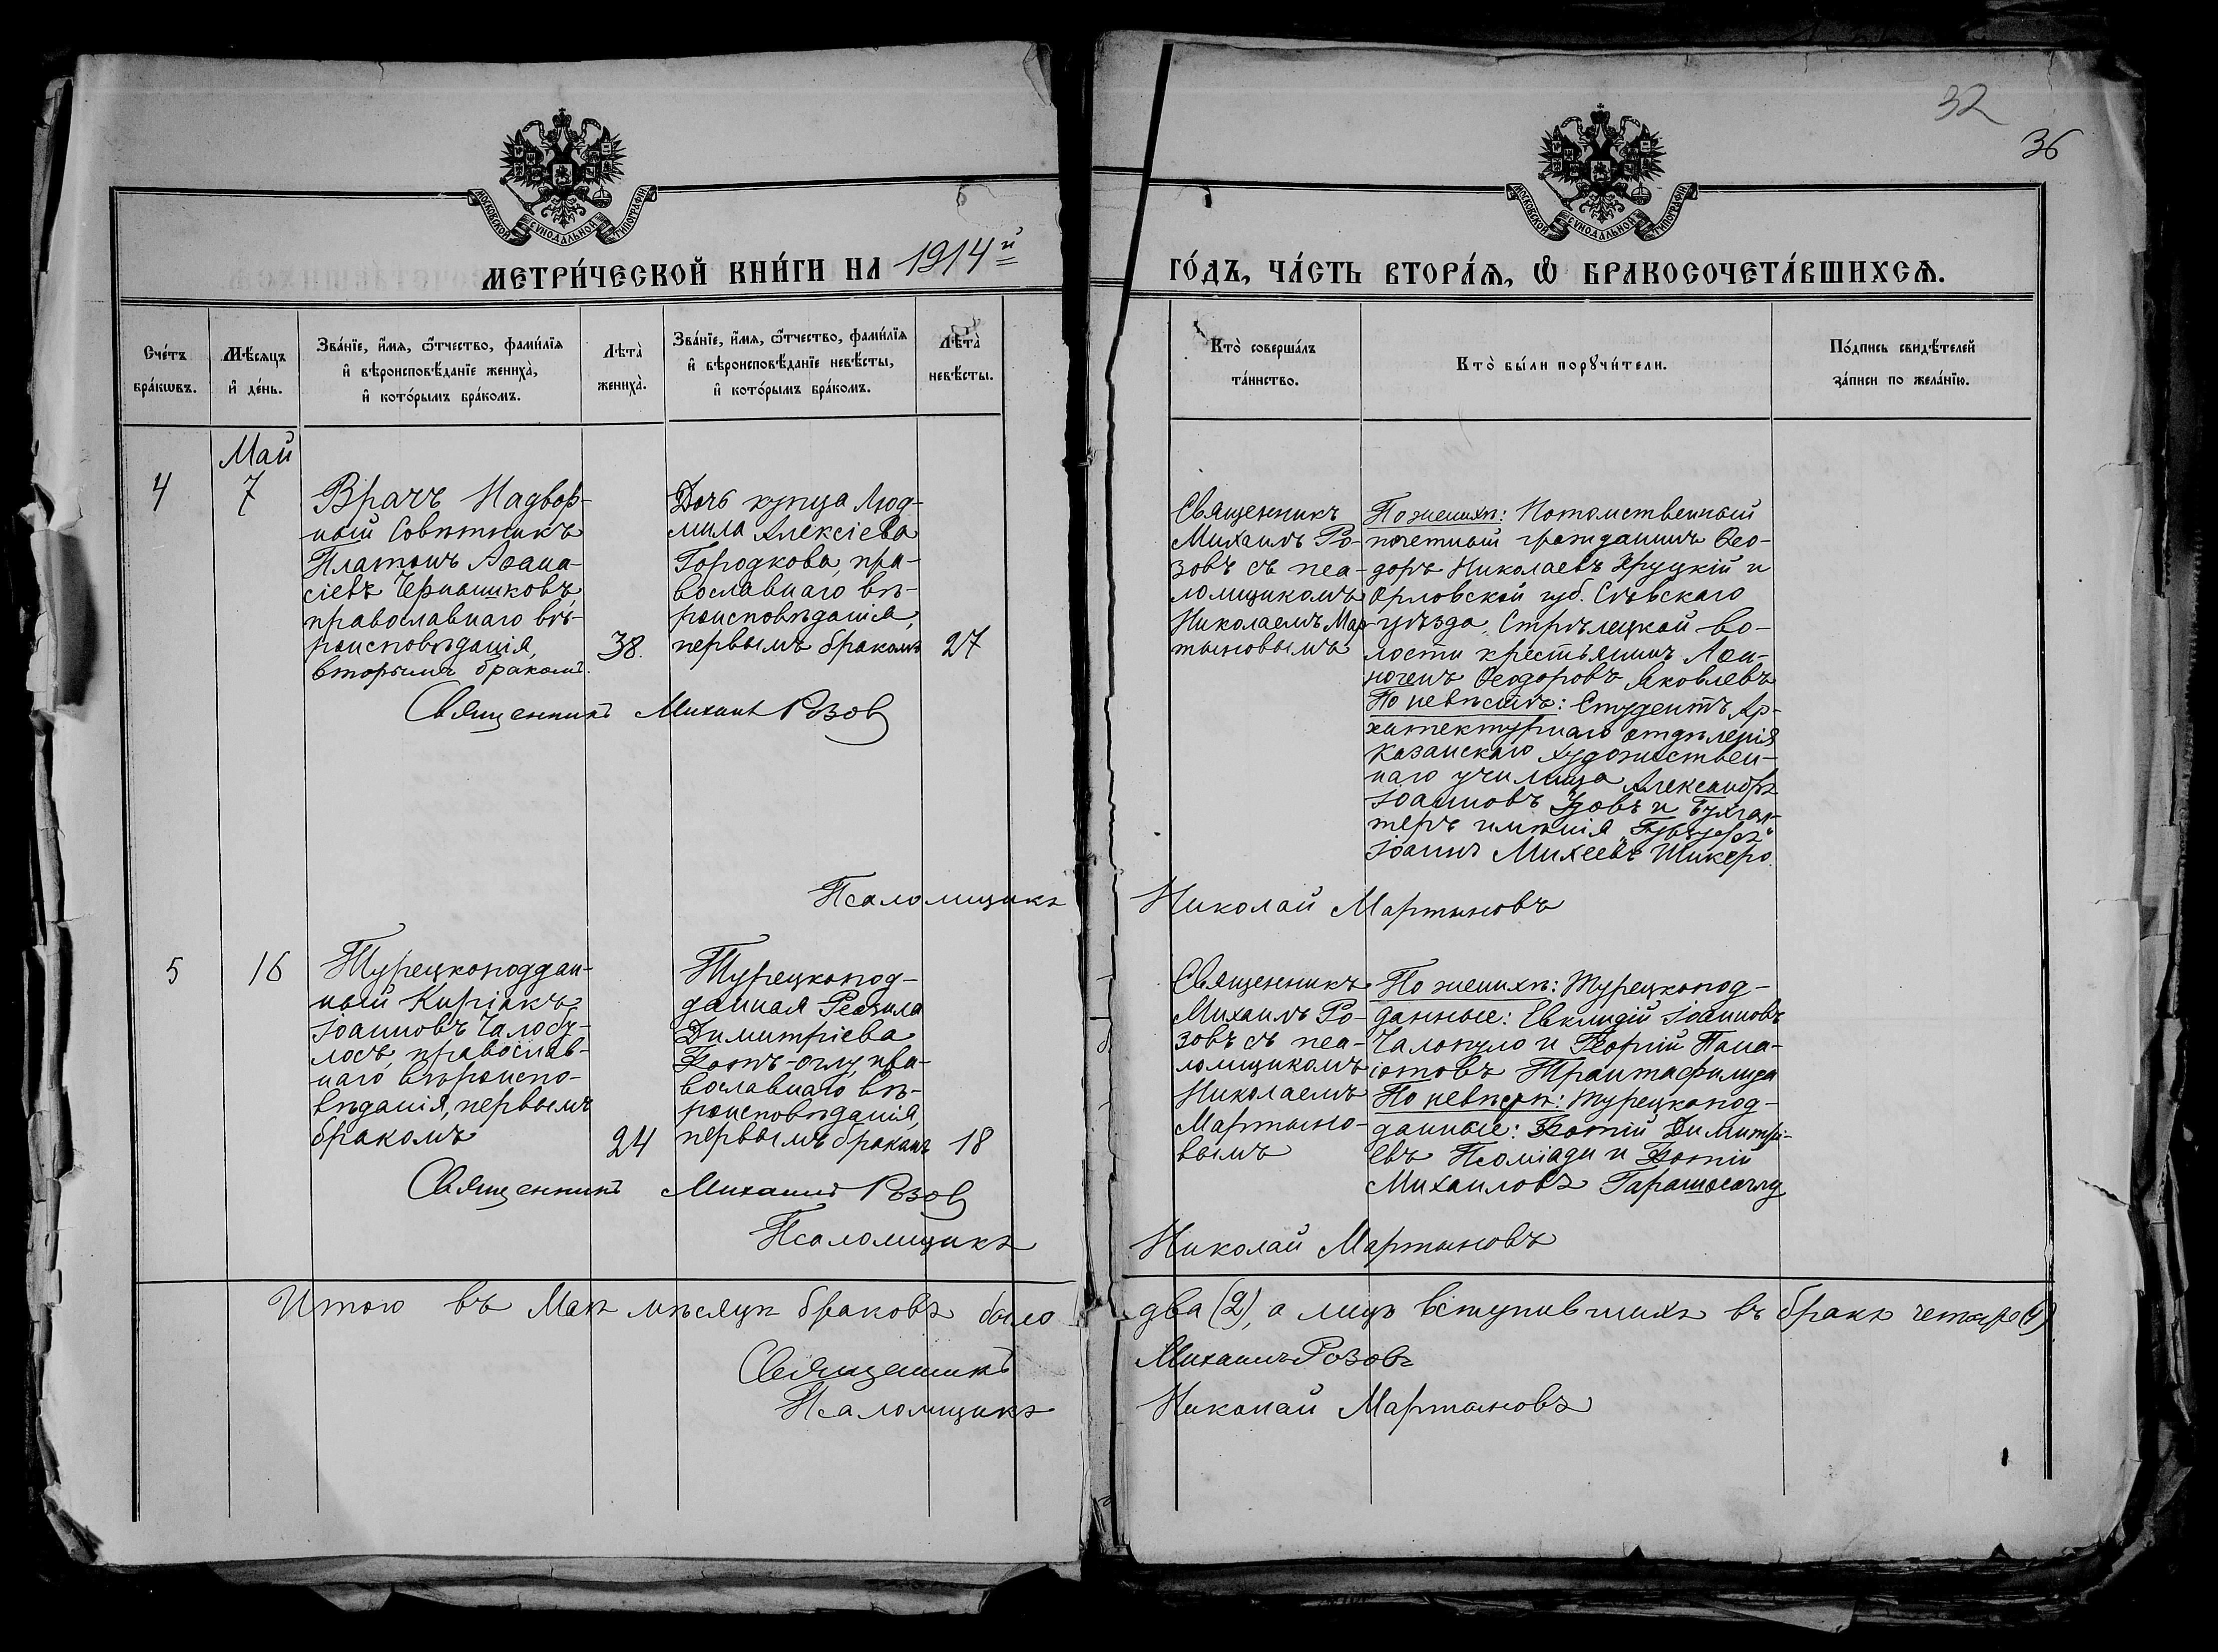 32
36
МОСКОВСКОЙ СУНОДАЛЬНОЙ ТИПОГРАФІИ
МОСКОВСКОЙ СУНОДАЛЬНОЙ ТИПОГРАФІИ
МЕТРИ́ЧЕСКОЙ КНИ́ГИ НА 1914й
ГО́ДЪ, ЧА́СТЬ ВТОРА́Ѧ, Ѽ БРАКОСОЧЕТА́ВШИХСѦ.
Сче́тъ
бра́кѡвъ.
Мѣ́сяцъ
и҆ де́нь.
Зва́нїе, и҆́мя, ѻ҆́тчество, фами́лїя
и҆ вѣроисповѣ́данїе жениха̀,
и҆ кото́рымъ бра́комъ.
Лѣта̀
жениха̀.
Зва́нїе, и҆́мя, ѻ҆́тчество, фами́лїя
и҆ вѣроисповѣ́данїе невѣ́сты,
и҆ кото́рымъ бра́комъ.
Лѣта̀
невѣ́сты.
Кто̀ соверша́лъ
та́инство.
Кто̀ бы́ли порꙋчи́тели.
По́дпись свидѣ́телей
за́писи по жела́нїю.
Май
4
7
Врачъ Надвор-
ный Совѣтникъ
Платонъ Аѳана-
сіевъ Чернышковъ,
православнаго вѣ-
роисповѣданія,
вторымъ бракомъ.
38.
Дочь купца Люд-
мила Алексіева
Городкова, пра-
вославнаго вѣ-
роисповѣданія,
первымъ бракомъ
27
Священникъ Михаилъ Розовъ
Священникъ
Михаилъ Ро-
зовъ съ пса-
ломщикомъ
Николаемъ Мар-
тыновымъ
По женихѣ: Потомственный
почетный гражданинъ Ѳео-
доръ Николаевъ Круцкій и
Орловской губ. Сѣвскаго
уѣзда, Стрѣлецкой во-
лости крестьянинъ Лон-
гинъ Ѳеодоровъ Яковлевъ
По невѣстѣ: Студентъ Ар-
хитектурнаго отдѣленія
Казанскаго художествен-
наго училища Александръ
Іоанновъ и Бухгал-
теръ имѣнія „Гурзуфъ"
Іоаннъ Михеевъ Шикеро.
Псаломщикъ Николай Мартыновъ
5
16
Турецкоподдан-
ный Киріакъ
Іоанновъ Чалобу-
лосъ, православ-
наго вѣроиспо-
вѣданія, первымъ
бракомъ
24
Турецкопод-
данная
Димитріева
пра-
вославнаго вѣ-
роисповѣданія,
первымъ бракомъ
18
Священникъ Михаилъ Розовъ
Священникъ
Михаилъ Ро-
зовъ съ пса-
ломщикомъ
Николаемъ
Мартыно-
вымъ
По женихѣ: Турецкопод-
данные: Евклидій Іоанновъ
Чалопуло и Георгій Пана-
іотовъ Трантафилиди
По невѣстѣ: Турецкопод-
данные: Фотій Димитрі-
евъ Псоміади и Фотій
Михаиловъ
Псаломщикъ Николай Мартыновъ
Итого въ Маѣ мѣсяцѣ браковъ было два (2), а лицъ вступившихъ въ бракъ четыре (4)
Священникъ Михаилъ Розовъ
Псаломщикъ Николай Мартыновъ